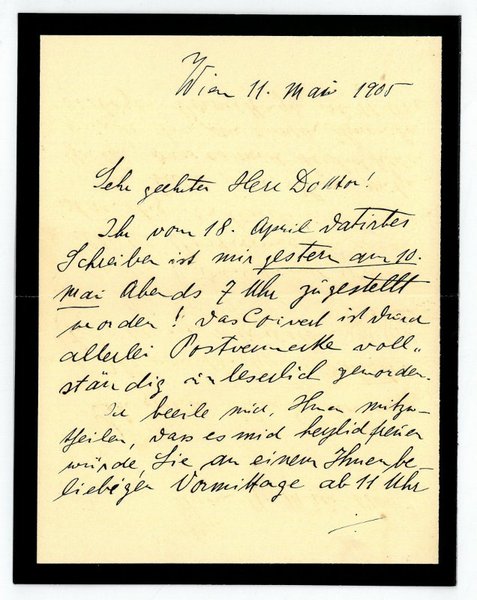 Wien 11. Mai 1905
Sehr geehrter Herr Doktor!
Ihr vom 18. April datirtes
Schreiben ist mir gestern am 10.
Mai Abends 7 Uhr zugestellt
worden! Das Couvert ist durch
allerlei Postvermerke voll„
ständig unleserlich geworden.
Ich beeile mich, Ihnen mitzu-
theilen, dass es mich herzlich freuen
würde, Sie an einem Ihnen be-
liebigen Vormittage ab 11 Uhr